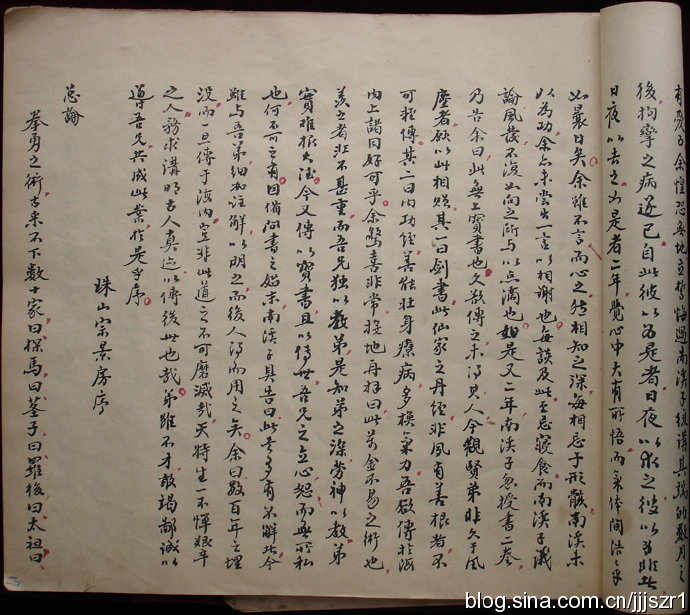 後拘攣之病遂已自此彼以為是者日夜以求之彼以為非者
日夜以去之如是者二年覺心中大有所悟而氣体间浩浩乎
如曩日矣余雖不言而心之然相知之深每相忘于形骸南溪未
以為功余亦未嘗出一言以相謝也每談及此至忘寢食而南溪子議
論風後不復如向之所与以点滴也如是又二年南溪子忽授書二卷
乃告余曰此無上寶書也久欲傳之未得其人今觀賢弟非久于風
塵者欲以此相贈其一曰剑書此仙家之丹經非風有善根者不
可輕傳其二曰内功經善能壮身療病多换氣力吾欲傳于海
内上諸同好可乎余驚喜非常接地再拜曰此萬金不易之術也
羡之者非不甚重而吾兄独以教弟是知弟之深劳神以教弟
寶難报大法今又傳以寶書且以傳世吾兄之立心恕而無所私
也何不可之有因備问書之始末南溪子具告曰此書多有不解此今
雖与吾弟细加註解以明之而後人得而用之矣余曰数百年之埋
没而一旦傳于海内豈非此道之不可磨滅哉天特生一不惮艱辛
之人務求講明古人真迹以傳後世也哉弟雖不才敢竭鄙诚以
導吾兄共成此業於是乎序
珠山宗景房序
总論
拳勇之術古来不下数十家曰探馬曰羅後曰太祖曰
blog.sina.com.cn/jjjszr1